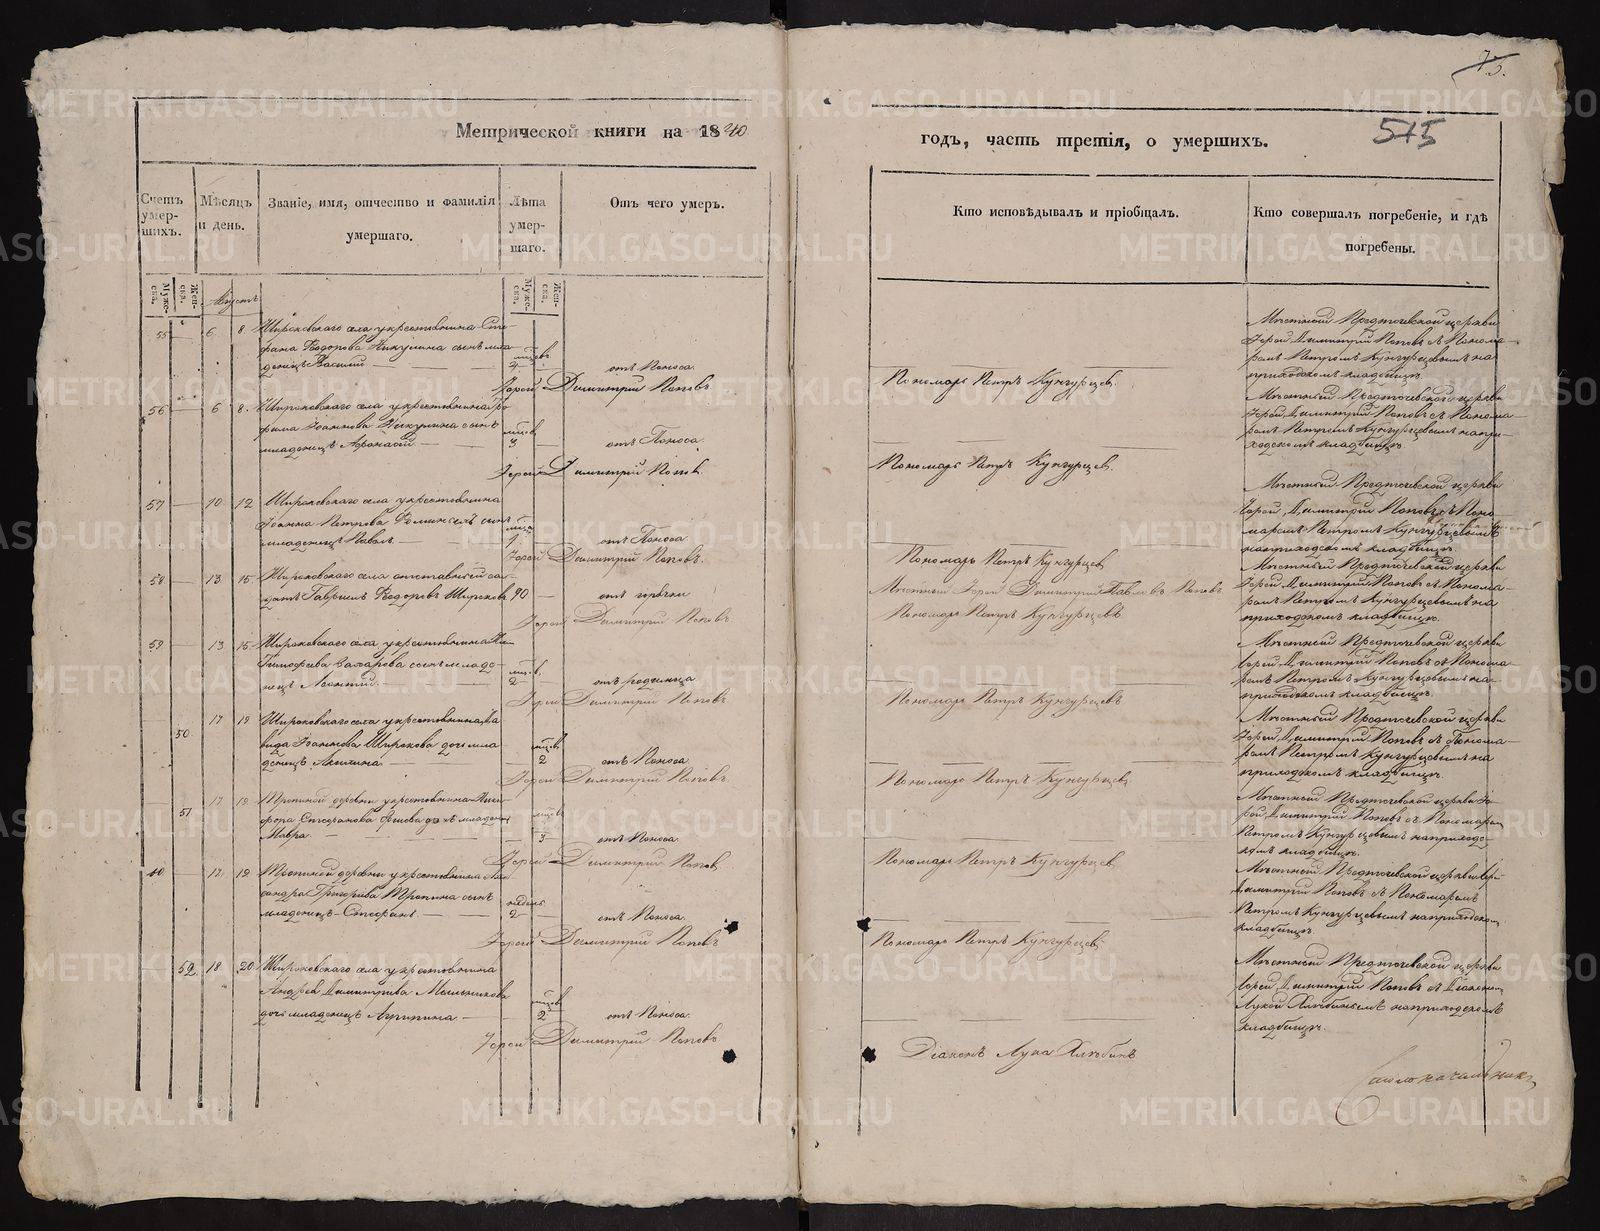 75.
575
Метрической книги на 1840
годъ, часть третія, о умершихъ.
Счетъ умер-шихъ.
Мѣсяцъ и день.
Званіе, имя, отчество и фамилія умершаго.
Лѣта умер-шаго.
Отъ чего умеръ.
Кто исповѣдывалъ и пріобщалъ.
Кто совершалъ погребеніе, и гдѣ погребены.
Муже-ска.
Жен-ска.
Муже-ска.
Жен-ска.
Августъ
55 — 6 8. Широковскаго села у крестьянина Сте-
фана Ѳедорова Никулина сынъ мла-
денецъ Василій
отъ Поноса.
Іерей Димитрій Поповъ
Пономарь Петръ Кунгурцевъ.
Мѣстный Предтечевской церкви
Іерей Димитрій Поповъ съ Понома-
ремъ Петромъ Кунгурцевымъ на
приходскомъ кладбищѣ.
56 — 6 8. Широковскаго села у крестьянина
Іоаннова Никулина сынъ
младенецъ Афанасій — 3
отъ Поноса.
Іерей Димитрій Поповъ
Пономарь Петръ Кунгурцевъ.
Мѣстный Предтечевской церкви
Іерей Димитрій Поповъ съ Понома-
ремъ Петромъ Кунгурцевымъ на при-
ходскомъ кладбищѣ.
57 — 10 12 Широковскаго села у крестьянина
Іоанна Петрова сынъ
младенецъ Павелъ
отъ Поноса
Іерей Димитрій Поповъ.
Пономарь Петръ Кунгурцевъ
Мѣстный Предтечевской церкви
Іерей Димитрій Поповъ съ Поно-
маремъ Петромъ Кунгурцевымъ
на приходскомъ кладбищѣ.
58 — 13 15 Широковскаго села отставный сол-
датъ Гавріилъ Ѳедоровъ Широковъ 90 —
отъ горячки
Іерей Димитрій Поповъ
Мѣстный Іерей Димитрій Павловъ Поповъ
Пономарь Петръ Кунгурцевъ
Мѣстный Предтечевской церкви
Іерей Димитрій Поповъ съ Понома-
ремъ Петромъ Кунгурцевымъ на
приходскомъ кладбищѣ.
59 — 13 15 Широковскаго села у крестьянина
Тимофеева Захарова сынъ младе-
нецъ Леонтій — 2
отъ родимца
Іерей Димитрій Поповъ
Пономарь Петръ Кунгурцевъ
Мѣстный Предтечевской церкви
Іерей Димитрій Поповъ съ Понома-
ремъ Петромъ Кунгурцевымъ на
приходскомъ кладбищѣ.
50 17 19 Широковскаго села у крестьянина Да-
вида Іоаннова Широкова дочь мла-
денецъ Акилина — 2
отъ Поноса.
Іерей Димитрій Поповъ
Пономарь Петръ Кунгурцевъ
Мѣстный Предтечевской церкви
Іерей Димитрій Поповъ съ Понома-
ремъ Петромъ Кунгурцевымъ на
приходскомъ кладбищѣ.
51 17 19 деревни у крестьянина Ники-
фора Стефанова дочь младенецъ
Мавра. — 3
отъ Поноса.
Іерей Димитрій Поповъ
Пономарь Петръ Кунгурцевъ
Мѣстный Предтечевской церкви Іе-
рей Димитрій Поповъ съ Пономаремъ
Петромъ Кунгурцевымъ на приходс-
комъ кладбищѣ.
17 19 деревни у крестьянина
Григорьева сынъ
младенецъ Стефанъ. — недель 2
отъ Поноса.
Іерей Димитрій Поповъ
Пономарь Петръ Кунгурцевъ.
Мѣстный Предтечевской церкви Іерей
Димитрій Поповъ съ Пономаремъ
Петромъ Кунгурцевымъ на приходскомъ
кладбищѣ.
52. 18 20. Широковскаго села у крестьянина
Андрея Димитріева Мыльникова
дочь младенецъ Агрипина — 2
отъ Поноса.
Іерей Димитрій Поповъ
Діаконъ Лука Хлѣбинъ
Мѣстный Предтечевской церкви
Іерей Димитрій Поповъ съ Діакономъ
Лукой Хлѣбинымъ на приходскомъ
кладбищѣ.
METRIKI.GASO-URAL.RU